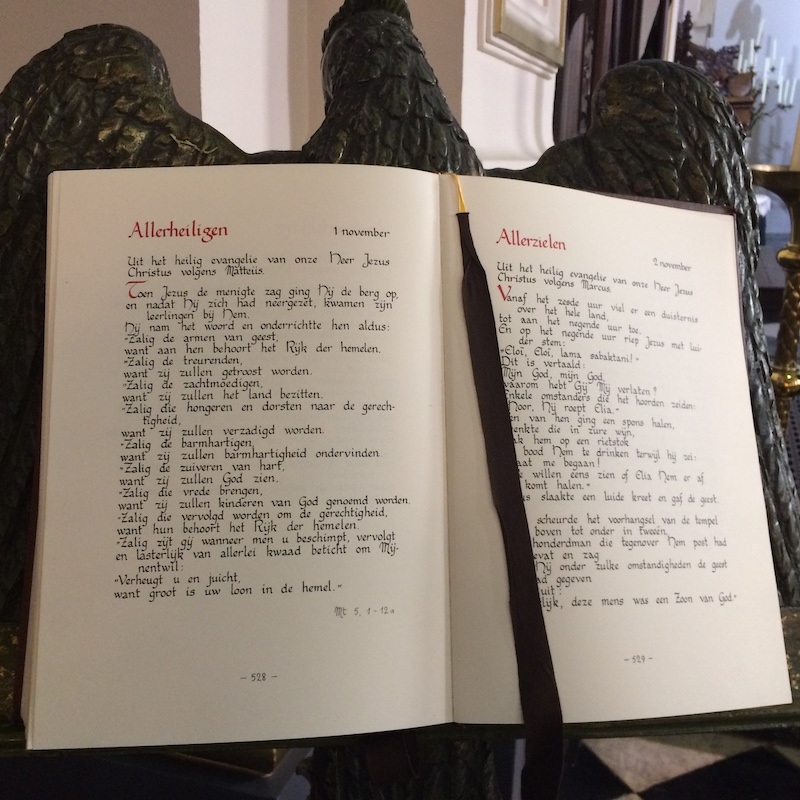 Allerheiligen
1 november
Uit het heilig evangelie van onze Heer Jezus
Christus volgens Matteüs.
Toen Jezus de menigte zag ging Hij de berg op,
en nadat Hij zich had neergezet, kwamen zijn
leerlingen bij Hem.
Hij nam het woord en onderrichtte hen aldus:
"Zalig de armen van geest,
want aan hen behoort het Rijk der hemelen.
"Zalig de treurenden,
want zij zullen getroost worden.
"Zalig de zachtmoedigen,
want zij zullen het land bezitten.
"Zalig die hongeren en dorsten naar de gerech-
tigheid,
want zij zullen verzadigd worden.
"Zalig de barmhartigen,
want zij zullen barmhartigheid ondervinden.
"Zalig de zuiveren van hart,
want zij zullen God zien.
"Zalig die vrede brengen,
want zij zullen kinderen van God genoemd worden.
"Zalig die vervolgd worden om de gerechtigheid,
want hun behoort het Rijk der hemelen.
"Zalig zijt gij wanneer men u beschimpt, vervolgt
en lasterlijk van allerlei kwaad beticht om Mij-
nentwil:
"Verheugt u en juicht,
want groot is uw loon in de hemel."
Mt 5, 1-12a
- 528 -
Allerzielen
2 november
Uit het heilig evangelie van onze Heer Jezus
Christus volgens Marcus.
Vanaf het zesde uur viel er een duisternis
over het hele land,
tot aan het negende uur toe.
En op het negende uur riep Jezus met lui-
der stem:
"Eloï, Eloï, lama sabaktani!"
Dit is vertaald:
Mijn God, mijn God,
waarom hebt Gij Mij verlaten?
Enkele omstanders die het hoorden zeiden:
"Hoor, Hij roept Elia."
en van hen ging een spons halen,
enkte die in zure wijn,
ak hem op een rietstok
bood Hem te drinken terwijl hij zei:
aat me begaan!
e willen eens zien of Elia Hem er af
komt halen."
us slaakte een luide kreet en gaf de geest.
scheurde het voorhangsel van de tempel
boven tot onder in tweeën.
honderdman die tegenover Hem post had
evat en zag
Hij onder zulke omstandigheden de geest
ad gegeven
uit:
lijk, deze mens was een Zoon van God."
- 529 -